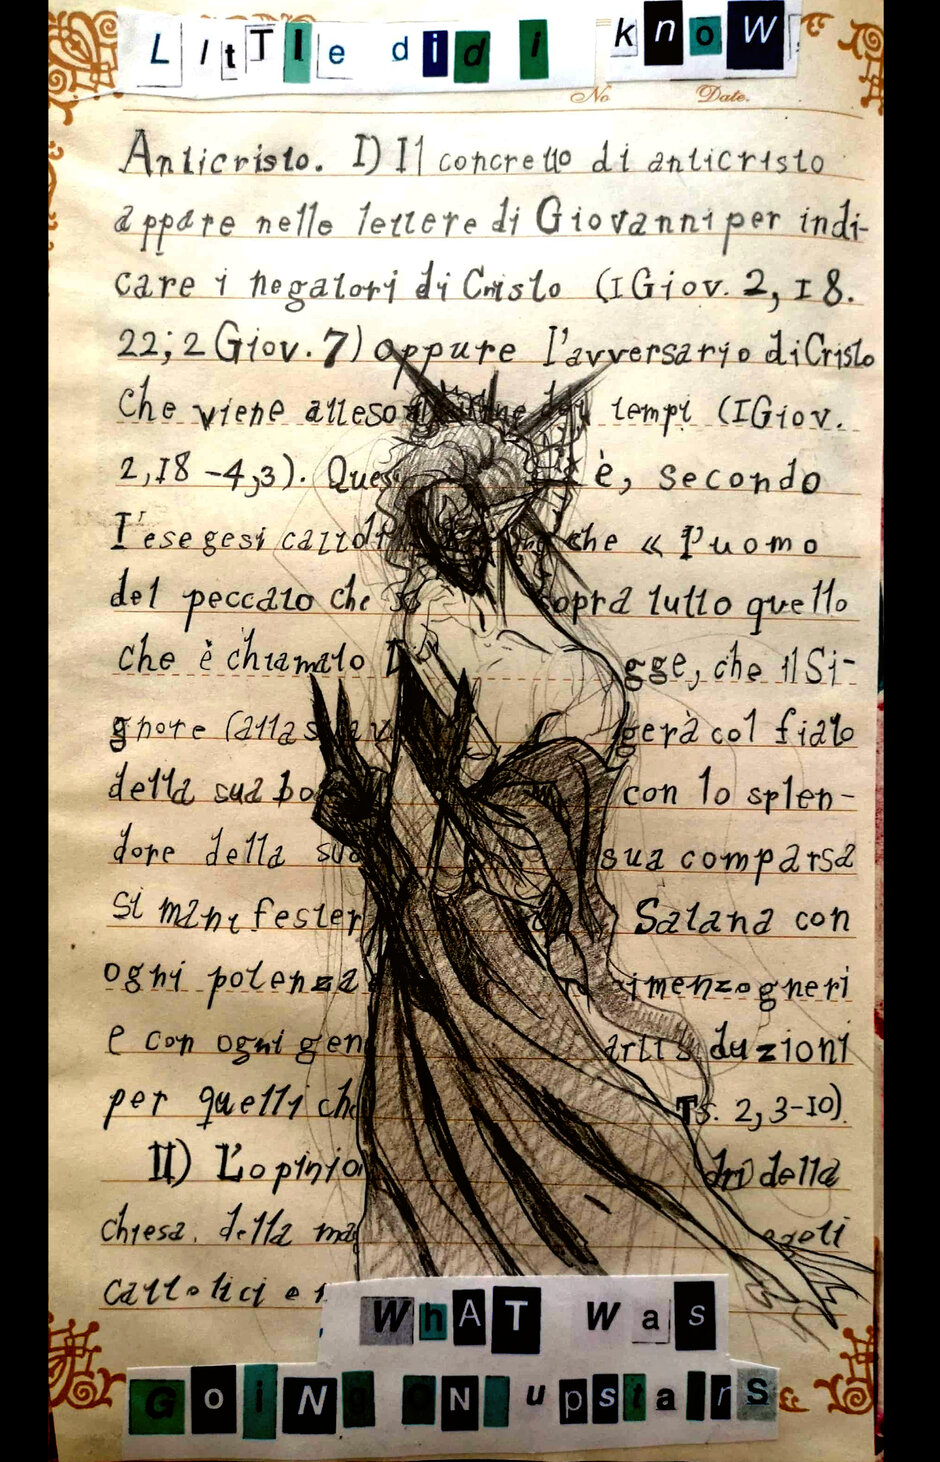 LITTLE did i know
No Date.
Anticristo. I) Il concretto di anticristo
appare nelle lettere di Giovanni per indi-
care i negatori di Cristo (I Giov. 2, 18.
22; 2 Giov. 7) oppure l'avversario di Cristo
che viene atteso tempi (I Giov.
2,18 -4,3). è, secondo
l'esegesi che « l'uomo
del peccato che sopra tutto quello
che è chiamato che il Si-
gnore (alla col fiato
della sua con lo splen-
dore della sua comparsa
si Satana con
ogni potenza menzogneri
e con ogni
per quelli Ts. 2, 3-10).
II) della
chiesa, della
cattolici e
WhAT was
GoiNG ON upstairs